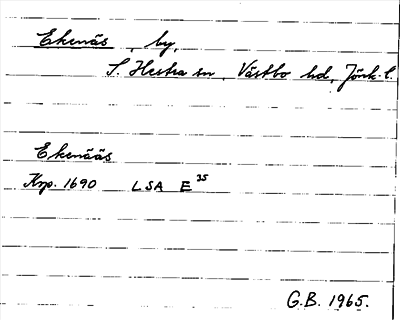 Ekenäs, by,
S. Hestra sn, Västbo hd, Jönk. l.
Ekenääs
Krp. 1690 LSA E 35
G.B. 1965.